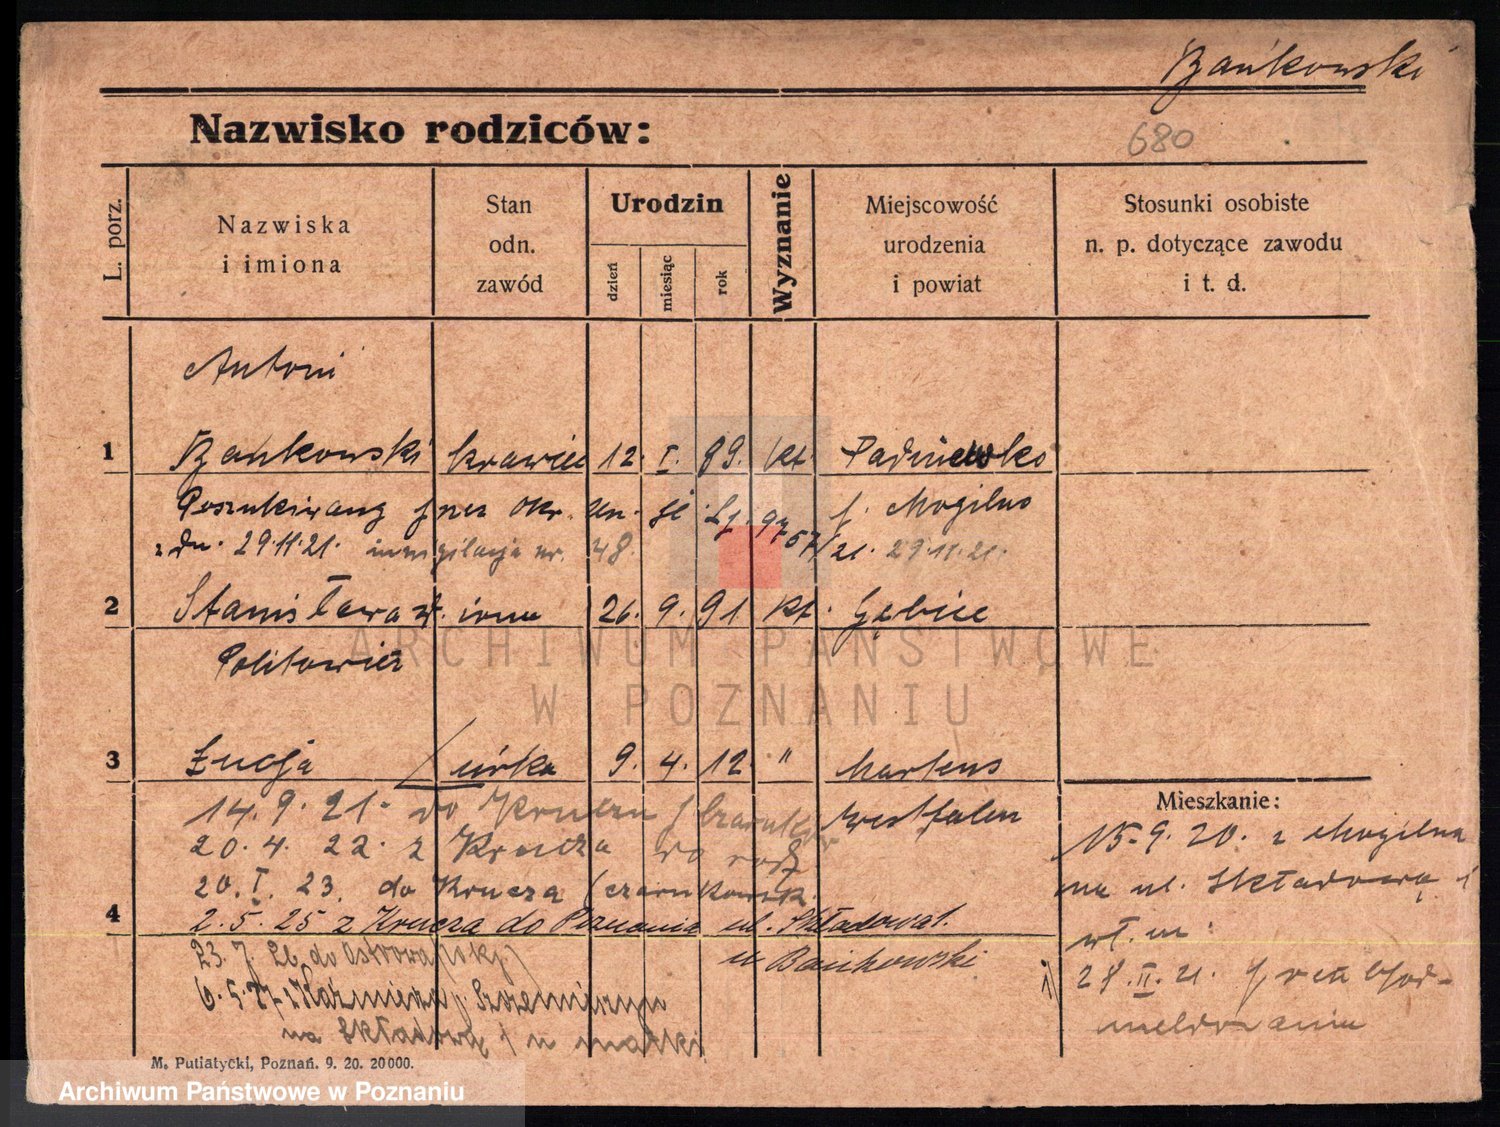 Bańkowski
Nazwisko rodziców:
680
L. porz.
Nazwiska i imiona
Stan odn. zawód
Urodzin
dzień
miesiąc
rok
Wyznanie
Miejscowość urodzenia i powiat
Stosunki osobiste n. p. dotyczące zawodu i t. d.
Antoni
1 Bańkowski krawiec 12. I. 89. kt. Padniewko
Poszukiwany przez Okr. p. Mogilno
z dn. 29.11.21. inwigilacja nr. 48. 29.11.21.
2 Stanisława żona 26. 9. 91 kt. Gębice
Politowicz
3 Łucja córka 9. 4. 12. " Martens
Westfalen
14. 9. 21. do Krucza
20. 4. 22. z Krucza do rodz
20. I. 23. do Krucza
4 2. 5. 25 z Krucza do Poznania ul. Składowa 1.
u Bańkowski
23. 7. 26. do Ostroroga
6. 5. 27 z Kaźmierza
na Składową 1 u matki
Mieszkanie:
15. 9. 20. z Mogilna
na ul. Składową 1
28. II. 21.
M. Putiatycki, Poznań. 9. 20. 20 000.
ARCHIWUM PAŃSTWOWE
W POZNANIU
Archiwum Państwowe w Poznaniu